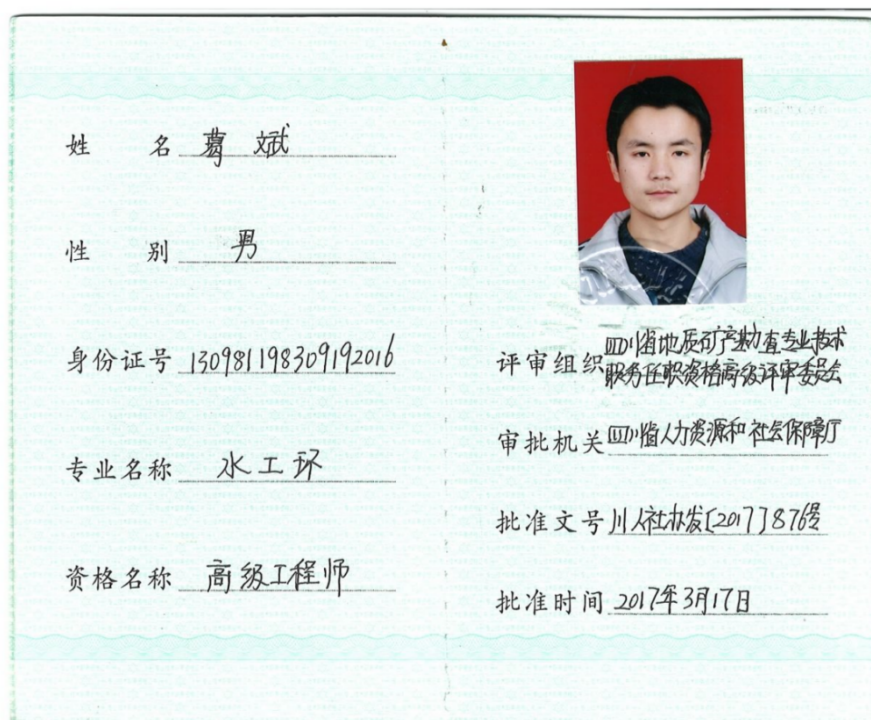 姓名 葛斌
性别 男
身份证号 130981198309192016
专业名称 水工环
资格名称 高级工程师
评审组织 四川省地质矿产勘查专业技术
职务任职资格高级评审委员会
审批机关 四川省人力资源和社会保障厅
批准文号 川人社办发[2017]876号
批准时间 2017年3月17日